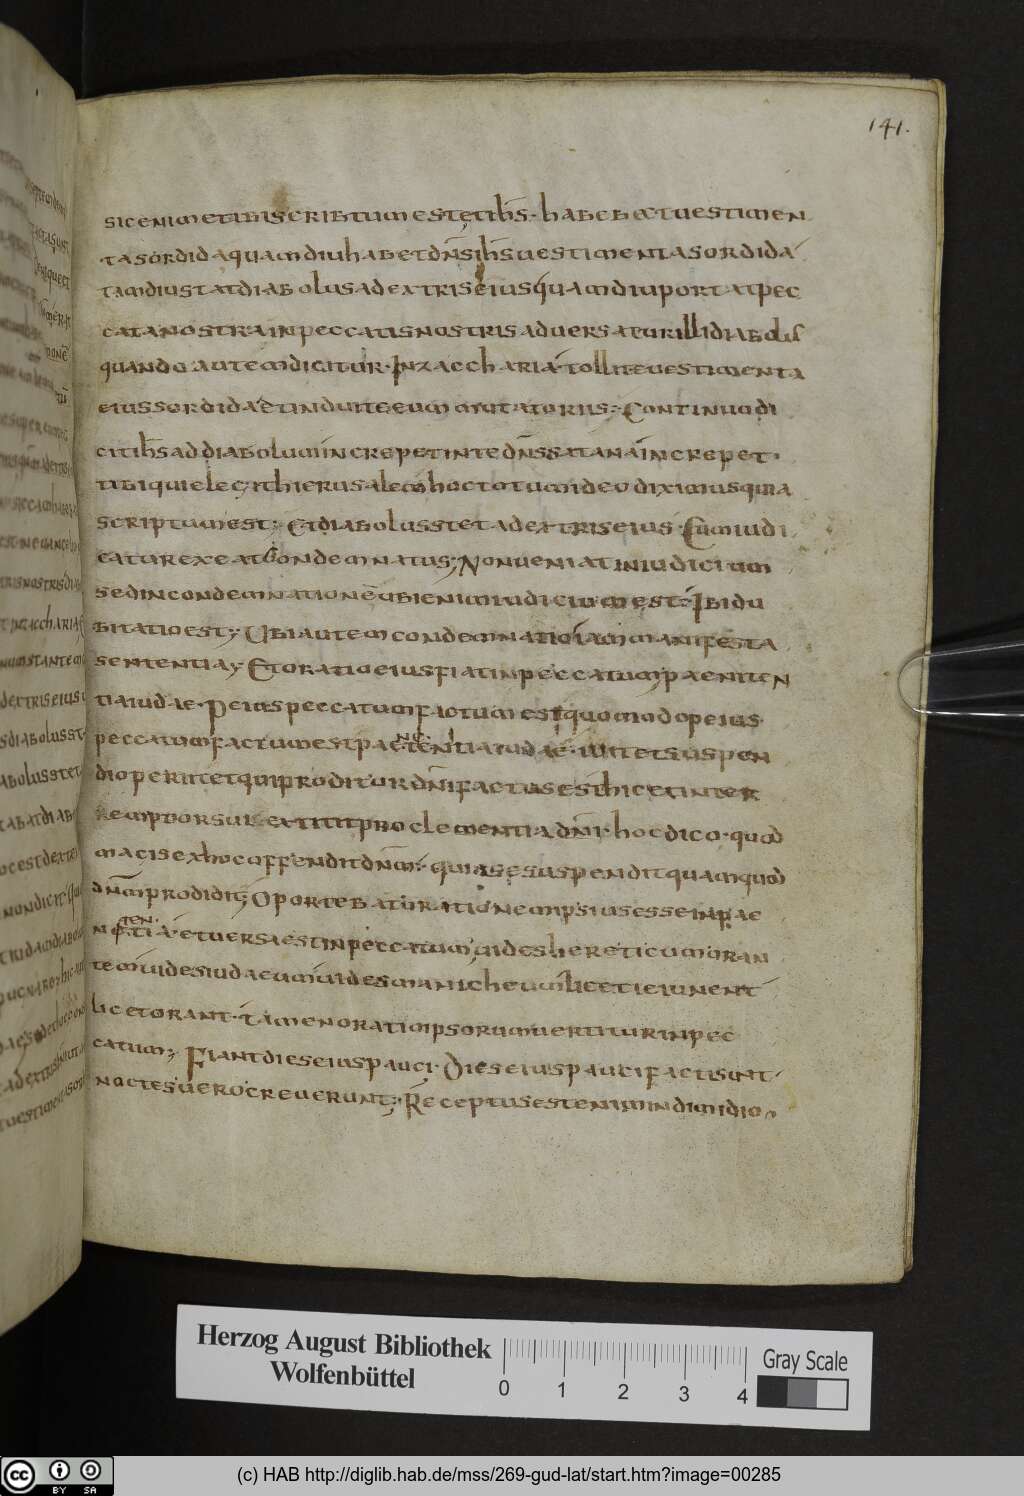 141.
sicenimetibiscribtumestetihs·habebatuestimen
tasordidaquamdiuhabetdnsihsuestimentasordida
tamdiustatdiabolusadextriseiusquamdiuportatpec
catanostrainpeccatisnostrisaduersaturillidiabolus
quandoautemdicitur·Inzaccharia·tolliteuestimenta
eiussordidaetinduiteeummutatoriis;Continuodi
citihsaddiabolumincrepetintednssatanaincrepet·
tibiquielegithierusalemhoctotumideodiximusquia
scriptumest;Etdiabolusstetadextriseius·Cumiudi
caturexeatcondemnatus;Nonueniatiniudicium
sedincondemnationeubienimiudiciumest;Ibidu
bitatioest;Ubiautemcondemnatioiammanifesta
sententia;Etoratioeiusfiatinpeccatum;paeniten
tiaiudae·Peiuspeccatumfactumestquomodopeius
peccatumfactumestpaenitentiaiudae·iuitetsuspen
dioperiitetquiproditordnifactusesthicetinter
remptorsuiextititproclementiadni·hocdico·quod
magisexhocoffenditdnm·quiasesuspenditquamquod
dnmprodidit;Oportebatorationemipsiusesseinpae
nitentia·etuersaestinpeccatum;uideshereticumoran
temuidesiudaeumuidesmanicheumlicetieiunent
licetorant·tamenoratioipsorumuertiturinpec
catum;Fiantdieseiuspauci·Dieseiuspaucifactisunt·
noctesuerocreuerunt;Receptusestenimindimidio,
Herzog August Bibliothek
Wolfenbüttel
0 1 2 3 4
Gray Scale
(c) HAB http://diglib.hab.de/mss/269-gud-lat/start.htm?image=00285
cc BY SA